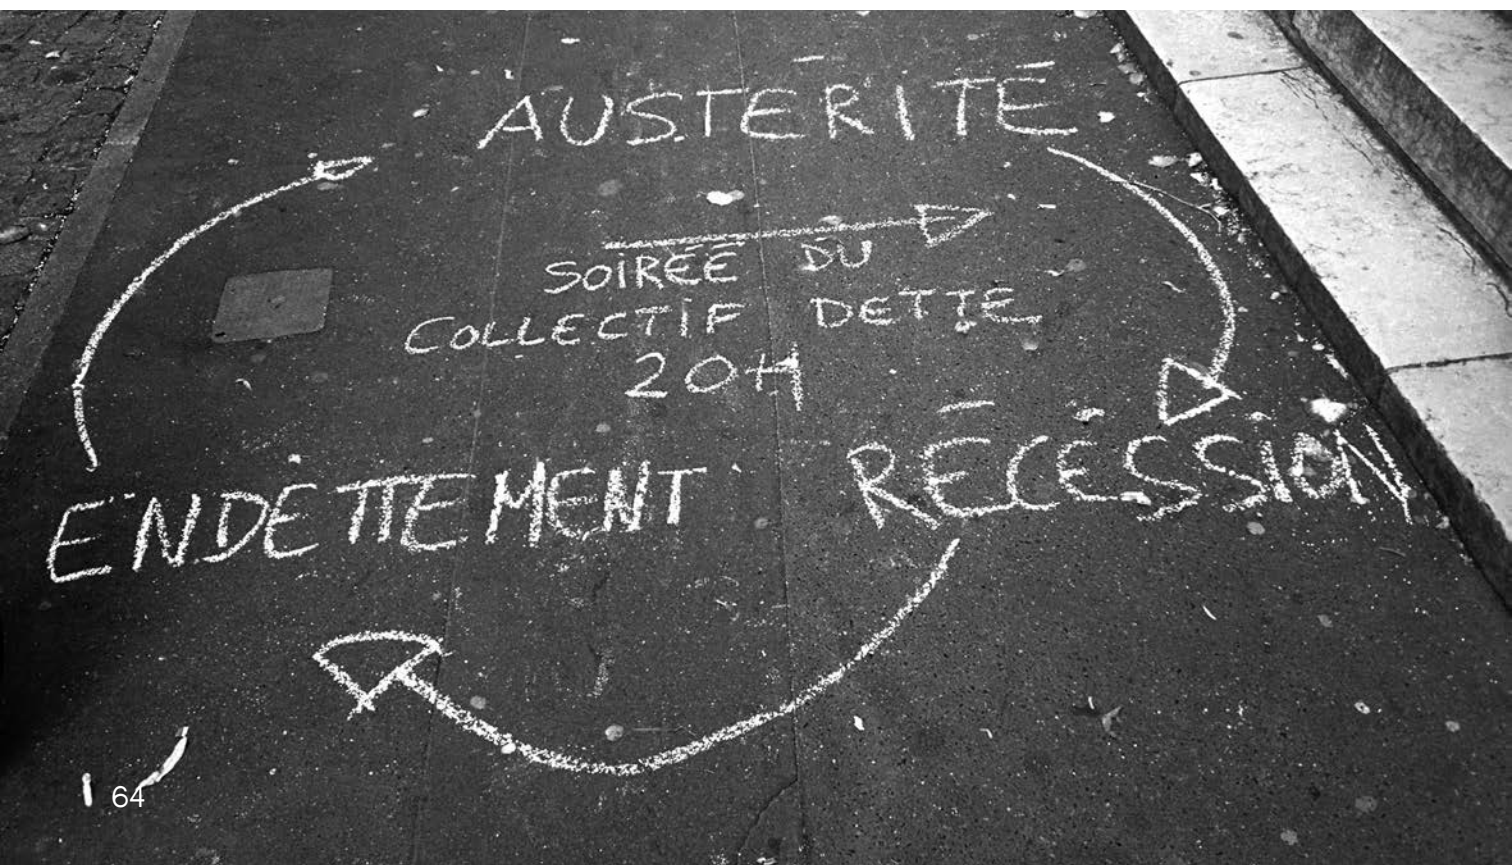 AUSTÉRITÉ
SOIRÉE DU
COLLECTIF DETTE
20H
ENDETTEMENT
RÉCESSION
64